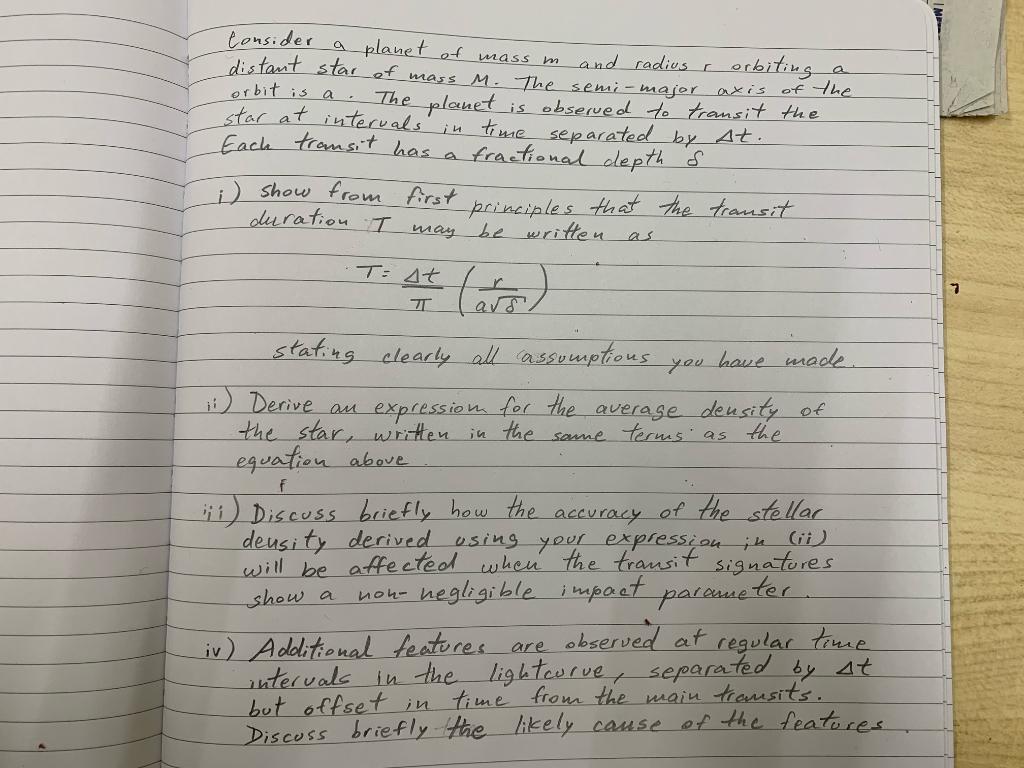 Consider a planet of mass m and radius r orbiting a
distant star of mass M. The semi-major axis of the
orbit is a. The planet is observed to transit the
star at intervals in time separated by Δt.
Each transit has a fractional depth δ
i) show from first principles that the transit
duration T may be written as
T = Δt/π (r/a√δ)
stating clearly all assumptions you have made.
ii) Derive an expression for the average density of
the star, written in the same terms as the
equation above.
iii) Discuss briefly how the accuracy of the stellar
density derived using your expression in (ii)
will be affected when the transit signatures
show a non-negligible impact parameter.
iv) Additional features are observed at regular time
intervals in the lightcurve, separated by Δt
but offset in time from the main transits.
Discuss briefly the likely cause of the features.